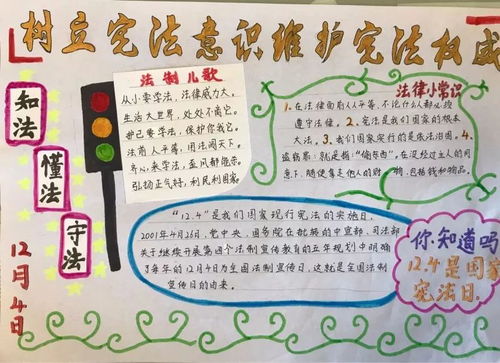 树立宪法意识维护宪法权威
知法
懂法
守法
12月4日
法制儿歌
从小要学法,法律威力大,
生活大世界,处处不离它。
自己要学法,保护你我它。
法前人平等,用法闯天下。
齐心来学法,歪风都
弘扬正气特,利民利国家
法律小常识
1.在法律面前人人平等,不论什么都必须
遵守法律。2.宪法是我们国家的根本
大法。3.我们国家实行的是依法治国。4.
盗窃罪:就是指:“偷东西”,在没经过主人的同
意下,随便拿是他人的财物,包括钱和物品。
“12.4”是我们国家现行宪法的实施日。
2001年4月26日,党中央,国务院在批转的中宣部,司法部
关于继续开展第四个法制宣传教育的五年规划中明确
了每年的12月4日为全国法制宣传日,这就是全国法制
宣传日的由来。
你知道吗
12.4是国家
宪法日.